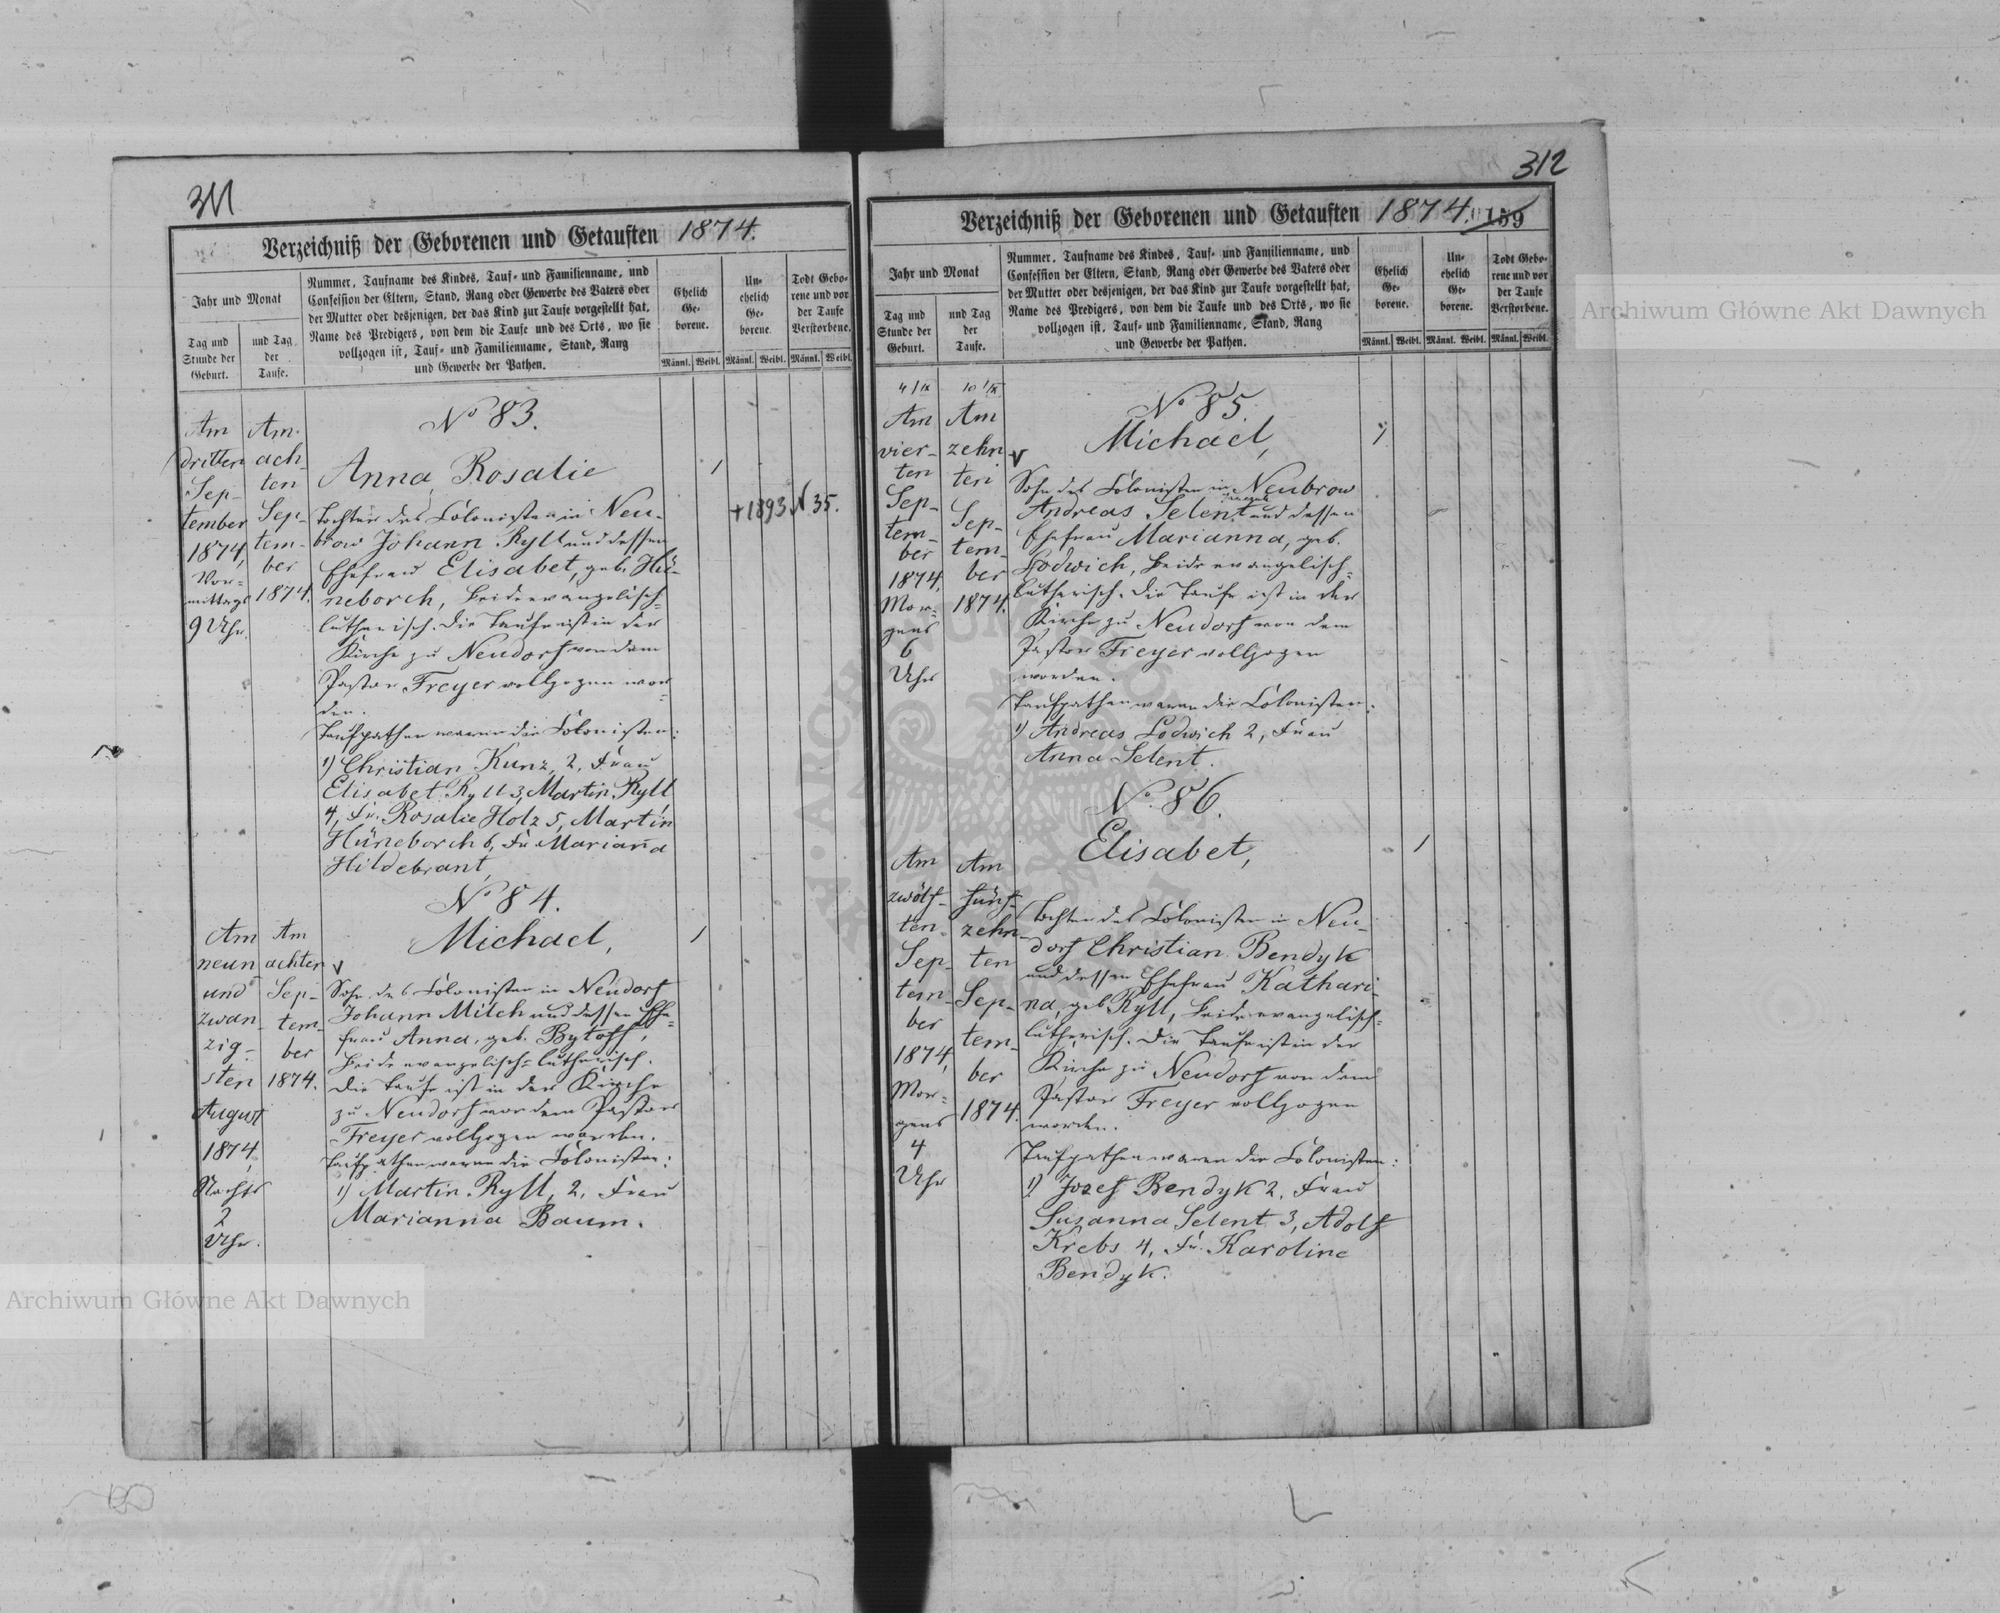 311
Verzeichniß der Geborenen und Getauften 1874.
Jahr und Monat
Tag und
Stunde der
Geburt.
und Tag
der
Taufe.
Nummer, Taufname des Kindes, Tauf- und Familienname, und
Confession der Eltern, Stand, Rang oder Gewerbe des Vaters oder
der Mutter oder desjenigen, der das Kind zur Taufe vorgestellt hat,
Name des Predigers, von dem die Taufe und des Orts, wo sie
vollzogen ist, Tauf- und Familienname, Stand, Rang
und Gewerbe der Pathen.
Ehelich
Ge-
borene.
Un-
ehelich
Ge-
borene.
Todt Gebo-
rene und vor
der Taufe
Verstorbene.
Männl. Weibl. Männl. Weibl. Männl. Weibl.
Am
dritten
Sep-
tember
1874,
Vor-
mittags
9 Uhr.
Am
ach-
ten
Sep-
tem-
ber
1874.
No 83.
Anna Rosalie
Tochter des Colonisten in Neu-
brow Johann Ryll und dessen
Ehefrau Elisabet, geb. Hü-
neborch, Beide evangelisch-
lutherisch. Die Taufe ist in der
Kirche zu Neudorf von dem
Pastor Freyer vollzogen wor-
den.
Taufpathen waren die Colonisten:
1) Christian Kunz, 2, Frau
Elisabet Ryll 3, Martin Ryll
4, Fr. Rosalie Holz 5, Martin
Hüneborch 6, Fr. Mariana
Hildebrant,
1
+ 1893 N 35.
Am
neun
und
zwan-
zig-
sten
August
1874,
Nachts
2
Uhr.
Am
achten
Sep-
tem-
ber
1874.
No 84.
Michael,
Sohn des Colonisten in Neudorf
Johann Milch und dessen Ehe-
frau Anna, geb. Bytoff,
Beide evangelisch-lutherisch.
Die Taufe ist in der Kirche
zu Neudorf von dem Pastor
Freyer vollzogen worden.
Taufpathen waren die Colonisten:
1) Martin Ryll, 2, Frau
Marianna Baum.
1
312
Verzeichniß der Geborenen und Getauften 1874. 159
Jahr und Monat
Tag und
Stunde der
Geburt.
und Tag
der
Taufe.
Nummer, Taufname des Kindes, Tauf- und Familienname, und
Confession der Eltern, Stand, Rang oder Gewerbe des Vaters oder
der Mutter oder desjenigen, der das Kind zur Taufe vorgestellt hat,
Name des Predigers, von dem die Taufe und des Orts, wo sie
vollzogen ist, Tauf- und Familienname, Stand, Rang
und Gewerbe der Pathen.
Ehelich
Ge-
borene.
Un-
ehelich
Ge-
borene.
Todt Gebo-
rene und vor
der Taufe
Verstorbene.
Männl. Weibl. Männl. Weibl. Männl. Weibl.
4/IX
Am
vier-
ten
Sep-
tem-
ber
1874,
Mor-
gens
6
Uhr
10/IX
Am
zehn
ten
Sep-
tem-
ber
1874.
No 85.
Michael,
Sohn des Colonisten in Neubrow
Andreas Selent und dessen
Ehefrau Marianna, geb.
Lodwich, Beide evangelisch-
lutherisch. Die Taufe ist in der
Kirche zu Neudorf von dem
Pastor Freyer vollzogen
worden.
Taufpathen waren die Colonisten:
1) Andreas Lodwich 2, Frau
Anna Selent.
1
Am
zwölf-
ten
Sep-
tem-
ber
1874,
Mor-
gens
4
Uhr
Am
fünf-
zehn
ten
Sep-
tem-
ber
1874.
No 86.
Elisabet,
Tochter des Colonisten in Neu-
dorf Christian Bendyk
und dessen Ehefrau Kathari-
na, geb. Ryll, Beide evangelisch-
lutherisch. Die Taufe ist in der
Kirche zu Neudorf von dem
Pastor Freyer vollzogen
worden.
Taufpathen waren die Colonisten:
1) Jozef Bendyk 2, Frau
Susanna Selent 3, Adolf
Krebs 4, Fr. Karoline
Bendyk.
1
Archiwum Główne Akt Dawnych
Archiwum Główne Akt Dawnych